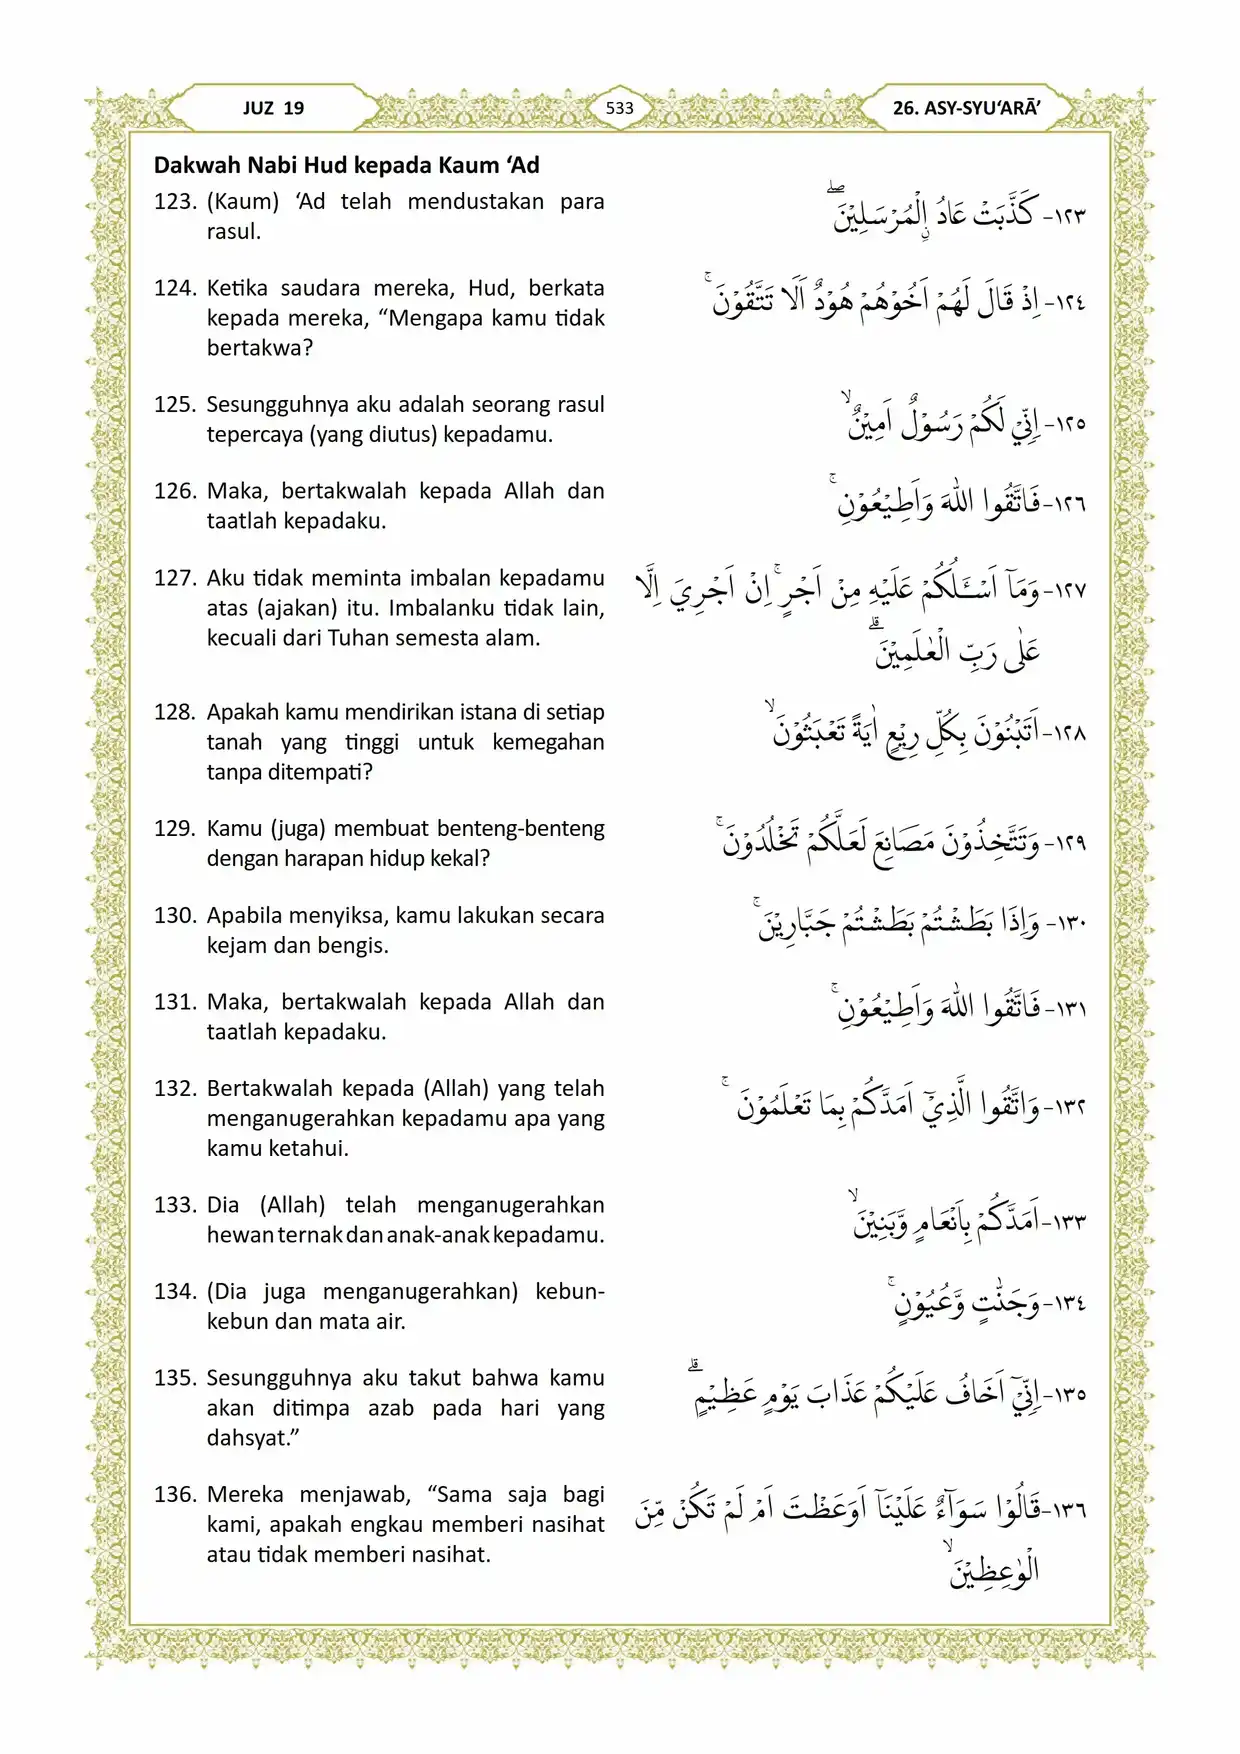 JUZ 19
533
26. ASY-SYU‘ARĀ’
Dakwah Nabi Hud kepada Kaum ‘Ad
123. (Kaum) ‘Ad telah mendustakan para
rasul.
١٢٣- كَذَّبَتْ عَادُ ۨالْمُرْسَلِيْنَ ۖ
124. Ketika saudara mereka, Hud, berkata
kepada mereka, “Mengapa kamu tidak
bertakwa?
١٢٤- اِذْ قَالَ لَهُمْ اَخُوْهُمْ هُوْدٌ اَلَا تَتَّقُوْنَ ۚ
125. Sesungguhnya aku adalah seorang rasul
tepercaya (yang diutus) kepadamu.
١٢٥- اِنِّيْ لَكُمْ رَسُوْلٌ اَمِيْنٌ ۙ
126. Maka, bertakwalah kepada Allah dan
taatlah kepadaku.
١٢٦- فَاتَّقُوا اللّٰهَ وَاَطِيْعُوْنِ ۚ
127. Aku tidak meminta imbalan kepadamu
atas (ajakan) itu. Imbalanku tidak lain,
kecuali dari Tuhan semesta alam.
١٢٧- وَمَآ اَسْـَٔلُكُمْ عَلَيْهِ مِنْ اَجْرٍ ۚ اِنْ اَجْرِيَ اِلَّا
عَلٰى رَبِّ الْعٰلَمِيْنَ ۗ
128. Apakah kamu mendirikan istana di setiap
tanah yang tinggi untuk kemegahan
tanpa ditempati?
١٢٨- اَتَبْنُوْنَ بِكُلِّ رِيْعٍ اٰيَةً تَعْبَثُوْنَ ۙ
129. Kamu (juga) membuat benteng-benteng
dengan harapan hidup kekal?
١٢٩- وَتَتَّخِذُوْنَ مَصَانِعَ لَعَلَّكُمْ تَخْلُدُوْنَ ۚ
130. Apabila menyiksa, kamu lakukan secara
kejam dan bengis.
١٣٠- وَاِذَا بَطَشْتُمْ بَطَشْتُمْ جَبَّارِيْنَ ۚ
131. Maka, bertakwalah kepada Allah dan
taatlah kepadaku.
١٣١- فَاتَّقُوا اللّٰهَ وَاَطِيْعُوْنِ ۚ
132. Bertakwalah kepada (Allah) yang telah
menganugerahkan kepadamu apa yang
kamu ketahui.
١٣٢- وَاتَّقُوا الَّذِيْٓ اَمَدَّكُمْ بِمَا تَعْلَمُوْنَ ۚ
133. Dia (Allah) telah menganugerahkan
hewan ternak dan anak-anak kepadamu.
١٣٣- اَمَدَّكُمْ بِاَنْعَامٍ وَّبَنِيْنَ ۙ
134. (Dia juga menganugerahkan) kebun-
kebun dan mata air.
١٣٤- وَجَنّٰتٍ وَّعُيُوْنٍ ۚ
135. Sesungguhnya aku takut bahwa kamu
akan ditimpa azab pada hari yang
dahsyat.”
١٣٥- اِنِّيْٓ اَخَافُ عَلَيْكُمْ عَذَابَ يَوْمٍ عَظِيْمٍ ۗ
136. Mereka menjawab, “Sama saja bagi
kami, apakah engkau memberi nasihat
atau tidak memberi nasihat.
١٣٦- قَالُوْا سَوَاۤءٌ عَلَيْنَآ اَوَعَظْتَ اَمْ لَمْ تَكُنْ مِّنَ
الْوٰعِظِيْنَ ۙ